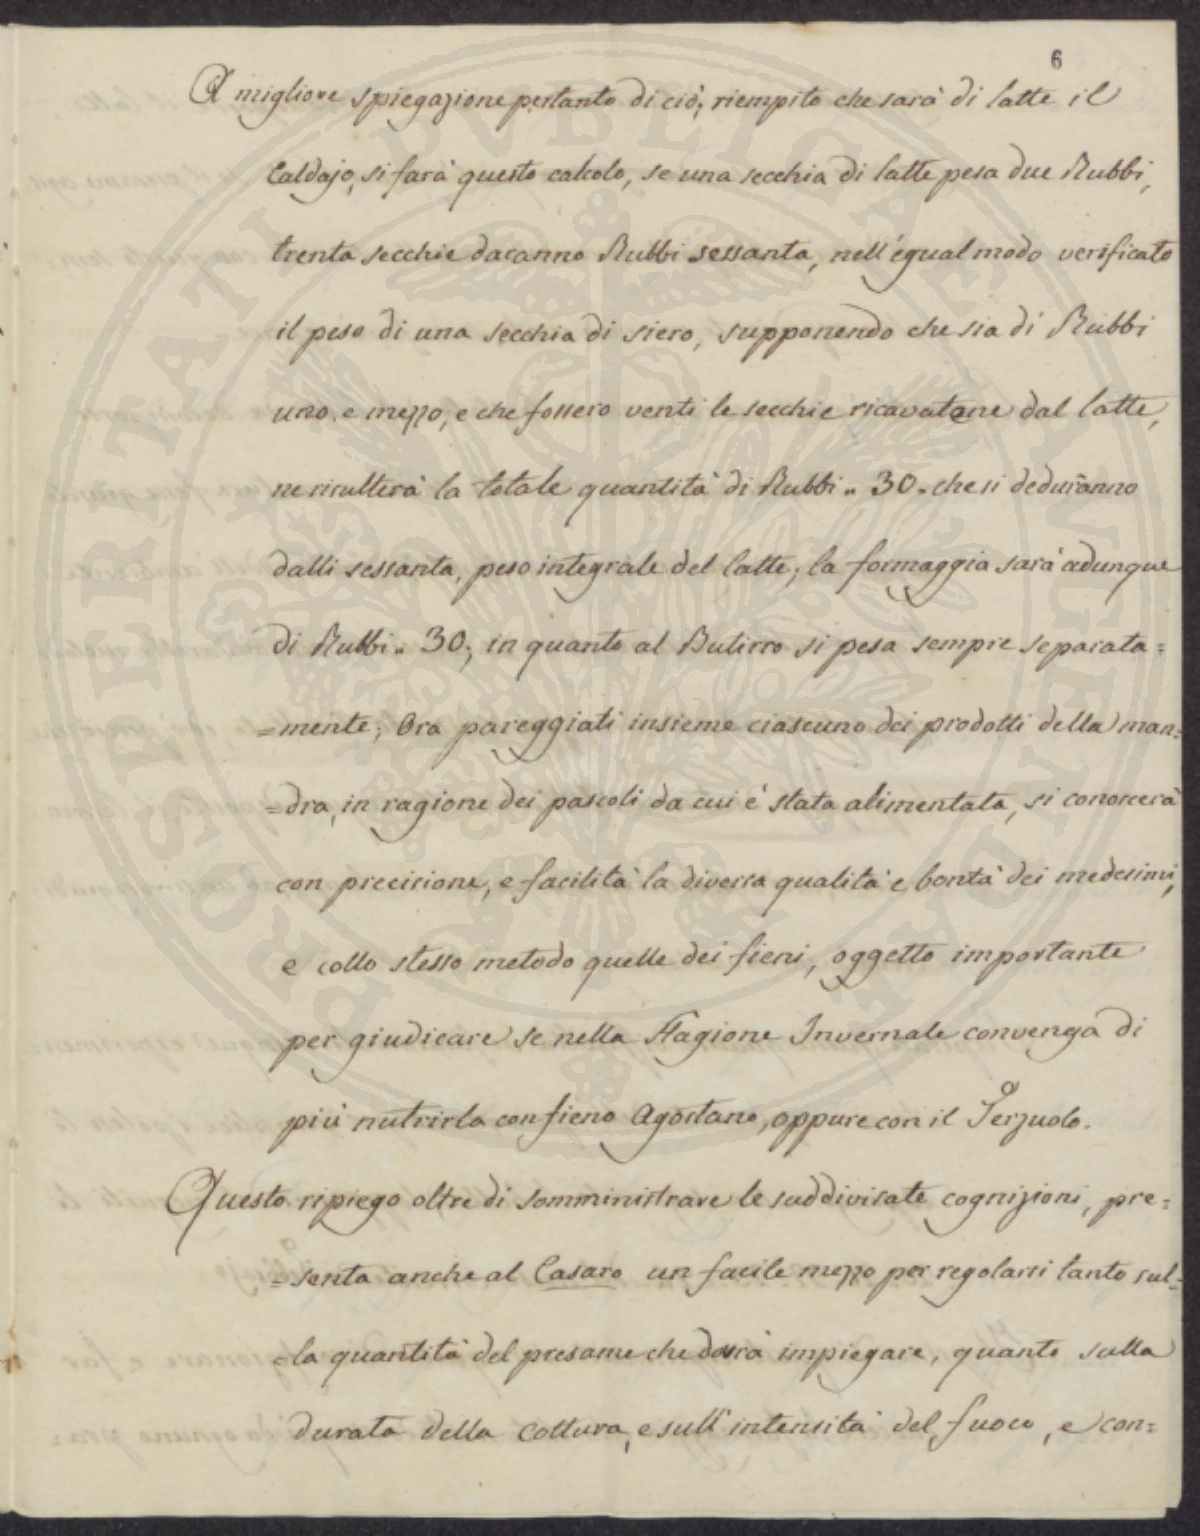 6
A migliore spiegazione pertanto di ciò; riempito che sarà di latte il
Caldajo, si farà questo calcolo, se una secchia di latte pesa due Rubbi,
trenta secchie daranno Rubbi sessanta, nell'egual modo verificato
il peso di una secchia di siero, supponendo che sia di Rubbi
uno e mezzo, e che fossero venti le secchie ricavatene dal latte,
ne risulterà la totale quantità di Rubbi „ 30 „ che si deduranno
dalli sessanta, peso integrale del latte; la formaggia sarà adunque
di Rubbi „ 30; in quanto al Butirro si pesa sempre separata=
=mente; Ora pareggiati insieme ciascuno dei prodotti della man=
=dra, in ragione dei pascoli da cui e' stata alimentata, si conoscerà
con precisione, e facilità la diversa qualità e bontà dei medesimi,
e collo stesso metodo quelle dei fieni, oggetto importante
per giudicare se nella Stagione Invernale convenga di
più nutrirla con fieno Agostano, oppure con il Terzuolo.
Questo ripiego oltre di somministrare le suddivisate cognizioni, pre=
=senta anche al Casaro un facile mezzo per regolarsi tanto sul=
=la quantità del presame che dovrà impiegare, quanto sulla
durata della Cottura, e sull'intensità del fuoco, e con=
PROSPERITATI PUBLICAE AUGENDAE